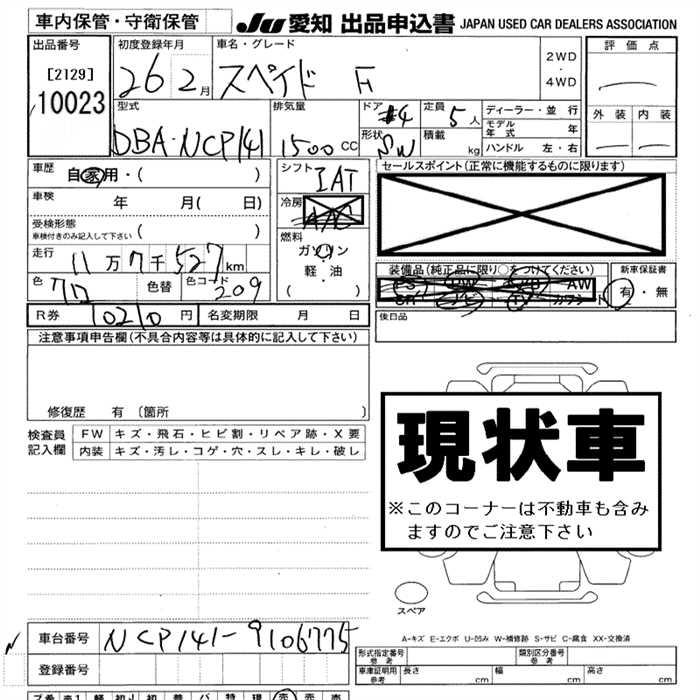 車内保管・守衛保管
JU 愛知 出品申込書 JAPAN USED CAR DEALERS ASSOCIATION
出品番号 初度登録年月 車名・グレード 評価点
[2129] 26 2月 スペイド F 2WD・4WD
10023
型式 排気量 ドア #4 定員 5人 ディーラー・並行 外装 内装
モデル年式 年
DBA-NCP141 1500CC 形状 SW 積載 kg ハンドル 左・右
車歴 自家用・( ) シフト IAT セールスポイント(正常に機能するものに限ります)
車検 年 月( 日) 冷房 A/C
受検形態 ( )
車検付きのみ記入して下さい
燃料 ガソリン
軽・油
( )
走行 11万7千527km
装備品(純正品に限り○をつけてください) 新車保証書
色 色替 色コード 209 PS PW AW 有・無
R券 10210円 名変期限 月 日 後日品
注意事項申告欄(不具合内容等は具体的に記入して下さい)
修復歴 有 〔箇所 〕
現状車
※このコーナーは不動車も含み
ますのでご注意下さい
検査員記入欄 FW キズ・飛石・ヒビ割・リペア跡・X要
内装 キズ・汚レ・コゲ・穴・スレ・キレ・破レ
スペア
A-キズ E-エクボ U-凹み W-補修跡 S-サビ C-腐食 XX-交換済
車台番号 NCP141-9106775
登録番号
形式指定番号 参考 類別区分番号 参考
車庫証明用 参考 長さ cm 幅 cm 高さ cm